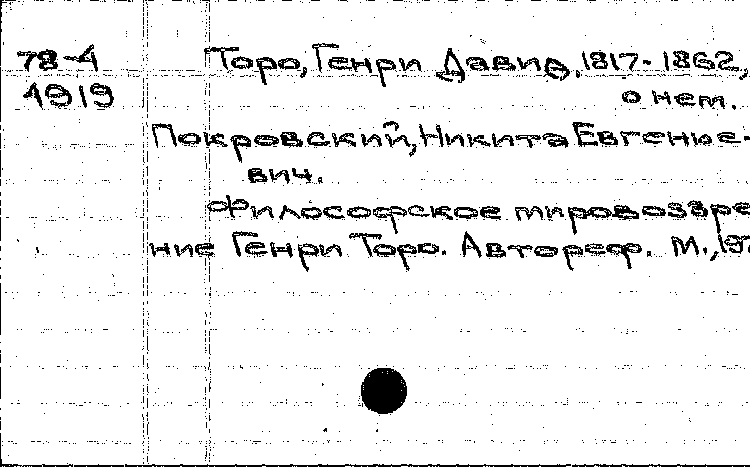 78-4 Торо, Генри Давид, 1817-1862,
4919 о нем.
Покровский, Никита Евгение-
вич.
Философское мировоззре
ние Генри Торо. Автореф. М.,